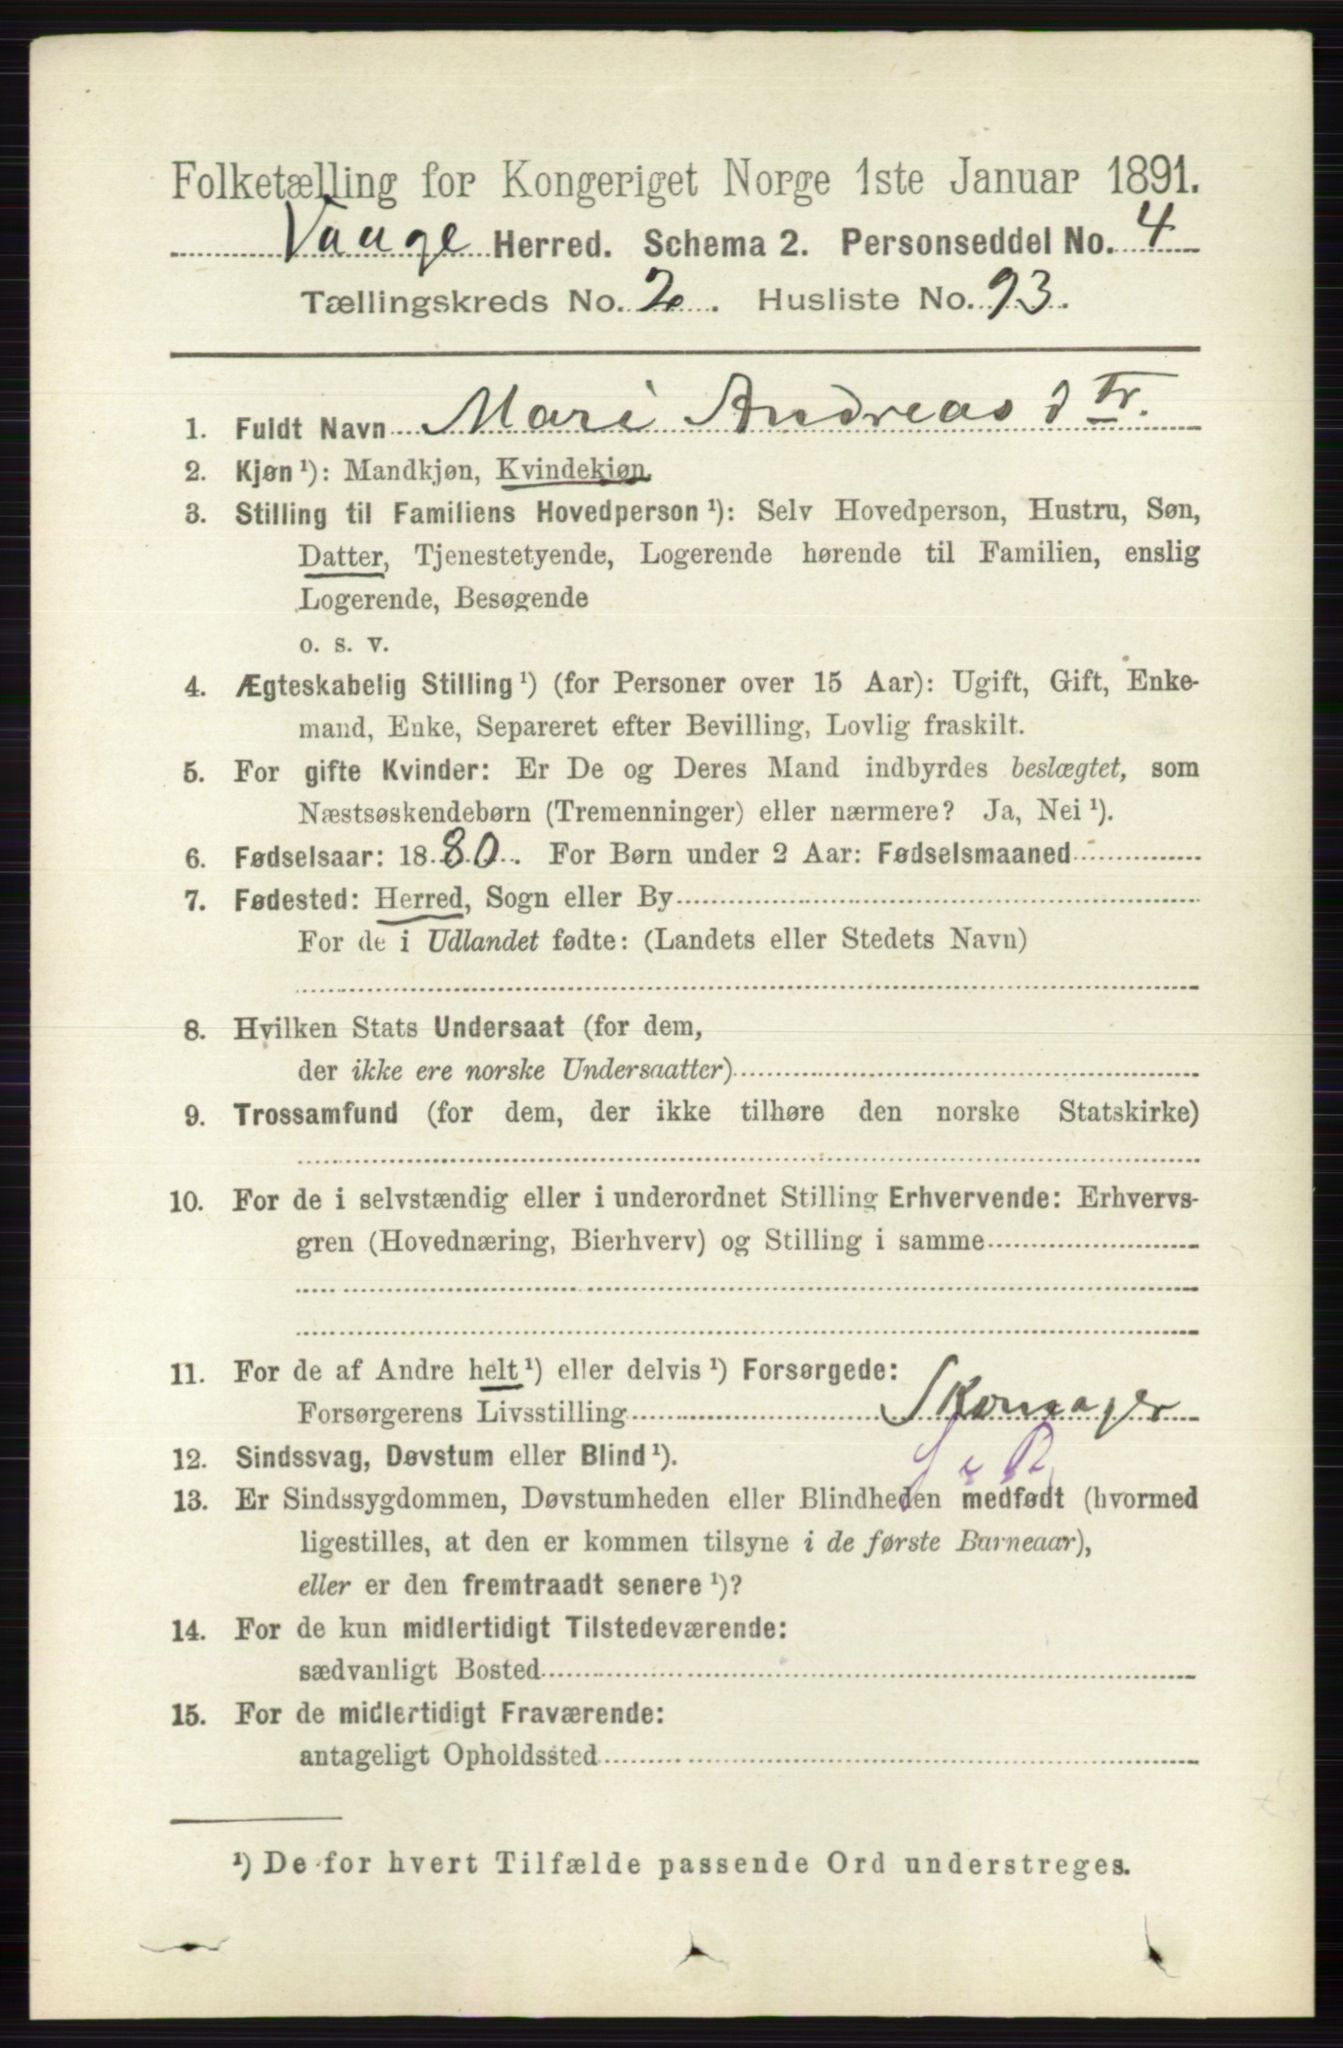 Folketælling for Kongeriget Norge 1ste Januar 1891.
Vaage Herred. Schema 2. Personseddel No. 4
Tællingskreds No. 2. Husliste No. 93.
1. Fuldt Navn Mari Andreasdtr.
2. Kjøn ¹): Mandkjøn, Kvindekjøn.
3. Stilling til Familiens Hovedperson ¹): Selv Hovedperson, Hustru, Søn,
Datter, Tjenestetyende, Logerende hørende til Familien, enslig
Logerende, Besøgende
o. s. v.
4. Ægteskabelig Stilling ¹) (for Personer over 15 Aar): Ugift, Gift, Enke-
mand, Enke, Separeret efter Bevilling, Lovlig fraskilt.
5. For gifte Kvinder: Er De og Deres Mand indbyrdes beslægtet, som
Næstsøskendebørn (Tremenninger) eller nærmere? Ja, Nei ¹).
6. Fødselsaar: 1880. For Børn under 2 Aar: Fødselsmaaned
7. Fødested: Herred, Sogn eller By
For de i Udlandet fødte: (Landets eller Stedets Navn)
8. Hvilken Stats Undersaat (for dem,
der ikke ere norske Undersaatter)
9. Trossamfund (for dem, der ikke tilhøre den norske Statskirke)
10. For de i selvstændig eller i underordnet Stilling Erhvervende: Erhvervs-
gren (Hovednæring, Bierhverv) og Stilling i samme
11. For de af Andre helt ¹) eller delvis ¹) Forsørgede:
Forsørgerens Livsstilling Skomager
12. Sindssvag, Døvstum eller Blind ¹).
13. Er Sindssygdommen, Døvstumheden eller Blindheden medfødt (hvormed
ligestilles, at den er kommen tilsyne i de første Barneaar),
eller er den fremtraadt senere ¹)?
14. For de kun midlertidigt Tilstedeværende:
sædvanligt Bosted
15. For de midlertidigt Fraværende:
antageligt Opholdssted
¹) De for hvert Tilfælde passende Ord understreges.